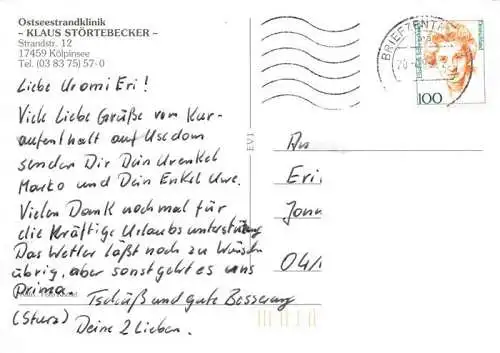 Ostseestrandklinik
~ KLAUS STÖRTEBECKER ~
Strandstr. 12
17459 Kölpinsee
Tel. (03 83 75) 57-0
Liebe Uromi Eri!
Viele Liebe Grüße vom Kur-
aufenthalt auf Usedom
senden Dir Dein Urenkel
Marko und Dein Enkel Uwe.
Vielen Dank nochmal für
die kräftige Urlaubsunterstützung
Das Wetter läßt noch zu Wünschen
übrig, aber sonst geht es uns
Prima.
Tschüß und gute Besserung
(Sturz)
Deine 2 Lieben.
EV1
BRIEFZENTR
Deutschland
100
An
Eri
04/